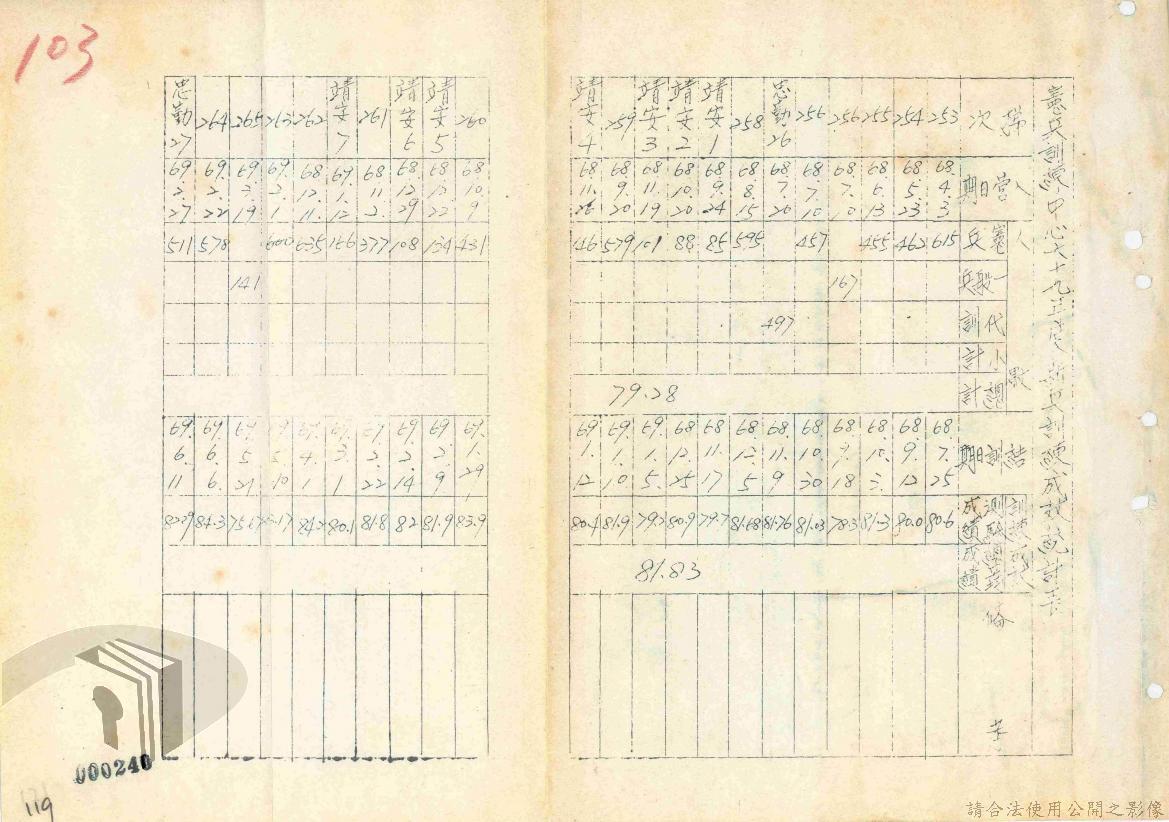 103
憲兵訓練中心六十九年度新兵訓練成效統計表
梯次 入營日期 入數 憲兵 一般兵 代訓 小計 總計 結訓日期 訓練成效 測驗成績 總成績 備考
253 68.4.3 615 68.7.25 80.6
254 68.5.23 462 68.9.12 80.0
255 68.6.13 455 68.10.3 81.3
256 68.7.10 167 68.9.18 78.3
256 68.7.10 457 68.10.30 81.03
忠勤26 68.7.26 497 68.11.9 81.76
258 68.8.15 595 68.12.5 81.68
靖安1 68.9.24 85 68.11.17 79.7
靖安2 68.10.20 88 68.12.25 80.9
靖安3 68.11.19 101 69.1.5 79.2
259 68.9.20 579 69.1.10 81.9
靖安4 68.11.26 146 69.1.12 80.4
79.28
81.83
260 68.10.9 431 69.1.29 83.9
靖安5 68.12.22 134 69.2.9 81.9
靖安6 68.12.29 108 69.2.14 82
261 68.11.2 377 69.2.22 81.8
靖安7 69.1.12 156 69.3.1 80.1
262 68.12.11 635 69.4.1 84.2
263 69.2.1 600 69.5.10
265 69.2.19 141 69.5.21
264 69.2.22 578 69.6.6 84.3
忠勤27 69.2.27 511 69.6.11 82.9
000240
119
請合法使用公開之影像